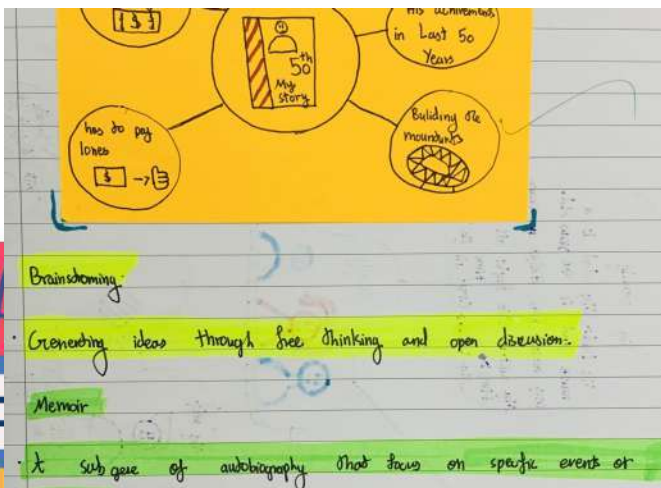 [$$]
His achivements
in Last 50
Years
50th
My
story
has to pay
lones
$
Buliding the
moundunts
Brainsdroming.
Generating ideas through free thinking and open discussion.
Memoir
A sub gere of autobiography that focus on specific events or